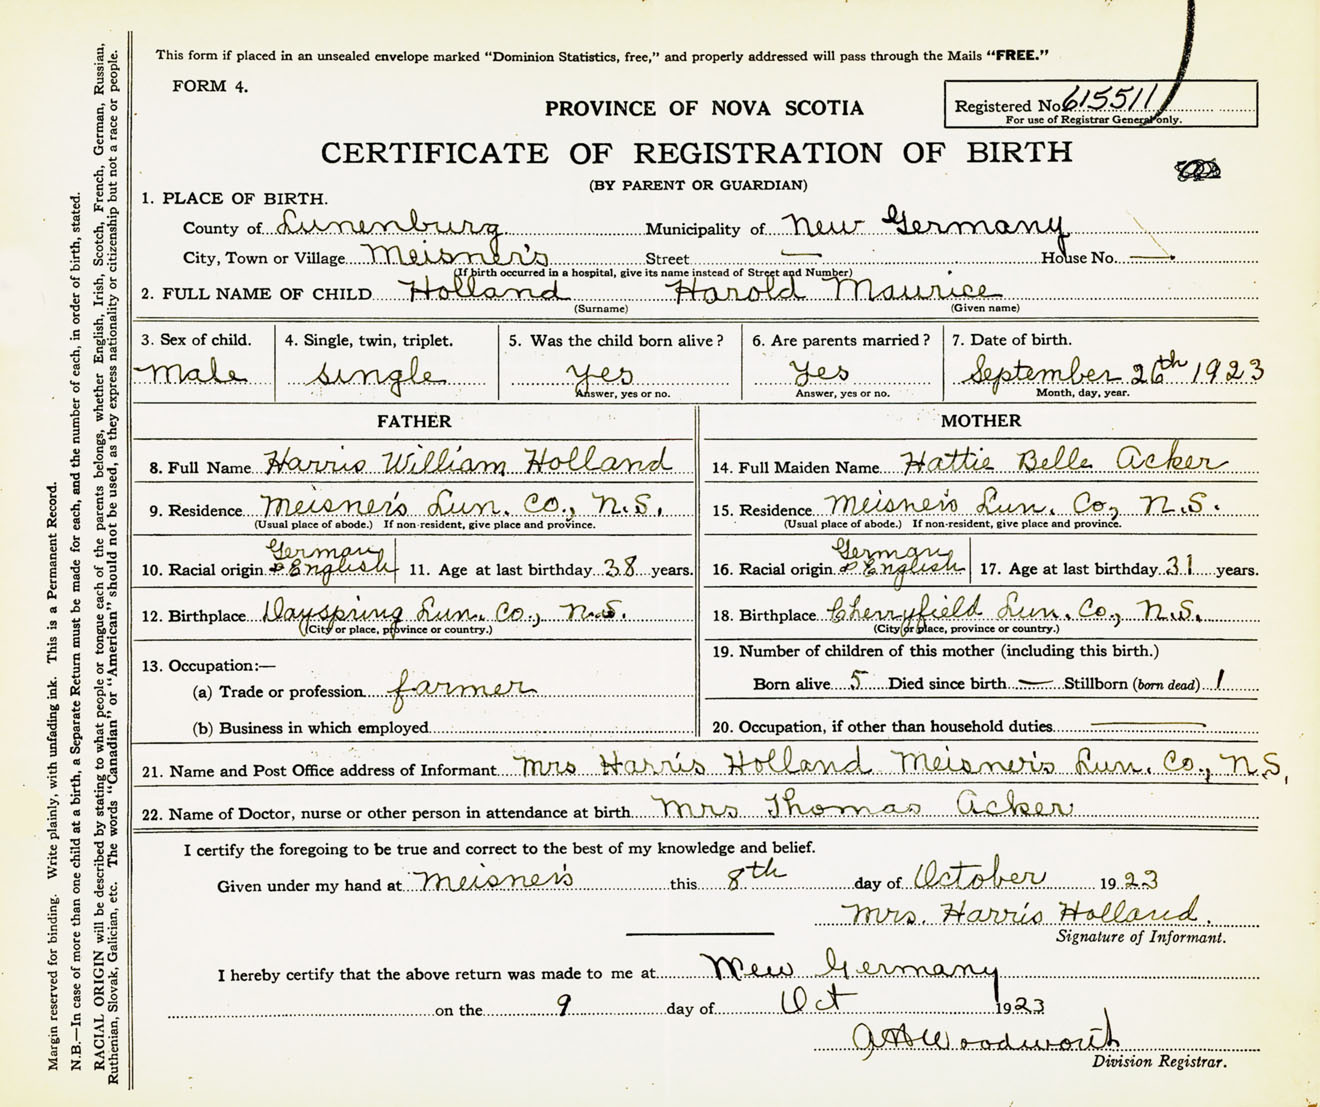 This form if placed in an unsealed envelope marked “Dominion Statistics, free,” and properly addressed will pass through the Mails “FREE.”
FORM 4.
Registered No. 615511
For use of Registrar General only.
PROVINCE OF NOVA SCOTIA
CERTIFICATE OF REGISTRATION OF BIRTH
(BY PARENT OR GUARDIAN)
1. PLACE OF BIRTH.
County of Lunenburg Municipality of New Germany
City, Town or Village Meisner's Street — House No. —
(If birth occurred in a hospital, give its name instead of Street and Number)
2. FULL NAME OF CHILD Holland Harold Maurice
(Surname) (Given name)
3. Sex of child. 4. Single, twin, triplet. 5. Was the child born alive? 6. Are parents married? 7. Date of birth.
Male single yes Yes September 26th 1923
Answer, yes or no. Answer, yes or no. Month, day, year.
FATHER
8. Full Name Harris William Holland
9. Residence Meisner's Lun. Co., N.S.
(Usual place of abode.) If non-resident, give place and province.
10. Racial origin German & English 11. Age at last birthday 38 years.
12. Birthplace Dayspring Lun. Co., N.S.
(City or place, province or country.)
13. Occupation:—
(a) Trade or profession farmer
(b) Business in which employed
MOTHER
14. Full Maiden Name Hattie Belle Acker
15. Residence Meisner's Lun. Co., N.S.
(Usual place of abode.) If non-resident, give place and province.
16. Racial origin German & English 17. Age at last birthday 31 years.
18. Birthplace Cherryfield Lun. Co., N.S.
(City or place, province or country.)
19. Number of children of this mother (including this birth.)
Born alive 5 Died since birth — Stillborn (born dead) 1
20. Occupation, if other than household duties —
21. Name and Post Office address of Informant Mrs Harris Holland Meisner's Lun. Co., N.S.
22. Name of Doctor, nurse or other person in attendance at birth Mrs Thomas Acker
I certify the foregoing to be true and correct to the best of my knowledge and belief.
Given under my hand at Meisner's this 8th day of October 1923
Mrs. Harris Holland.
Signature of Informant.
I hereby certify that the above return was made to me at New Germany
on the 9 day of Oct 1923
Woodworth
Division Registrar.
Margin reserved for binding. Write plainly, with unfading ink. This is a Permanent Record.
N.B.—In case of more than one child at a birth, a Separate Return must be made for each, and the number of each, in order of birth, stated.
RACIAL ORIGIN will be described by stating to what people or tongue each of the parents belongs, whether English, Irish, Scotch, French, German, Russian,
Ruthenian, Slovak, Galician, etc. The words “Canadian” or “American” should not be used, as they express nationality or citizenship but not a race or people.